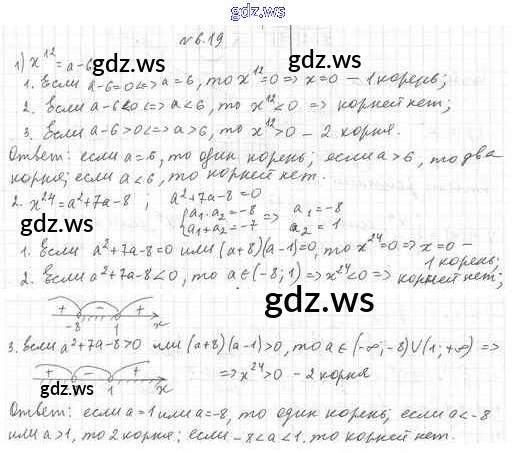 gdz.ws
№6.19
1) x^12 = a-6
gdz.ws
gdz.ws
1. Если a-6=0 <=> a=6, то x^12=0 => x=0 – 1 корень;
2. Если a-6<0 <=> a<6, то x^12<0 => корней нет;
3. Если a-6>0 <=> a>6, то x^12>0 – 2 корня.
Ответ: если a=6, то один корень; если a>6, то два
корня; если a<6, то корней нет.
2. x^24 = a²+7a-8 ; a²+7a-8=0
{a₁·a₂=-8 => a₁=-8
a₁+a₂=-7 a₂=1
gdz.ws
gdz.ws
1. Если a²+7a-8=0 или (a+8)(a-1)=0, то x^24=0 => x=0 –
1 корень;
2. Если a²+7a-8<0, то a∈(-8;1) => x^24<0 => корней нет;
+ - +
-8 1 x
gdz.ws
3. Если a²+7a-8>0 или (a+8)(a-1)>0, то a∈(-∞;-8)∪(1;+∞) =>
+ - +
1 x
=> x^24>0 – 2 корня
gdz.ws
gdz.ws
Ответ: если a=1 или a=-8, то один корень; если a<-8
или a>1, то 2 корня; если -8<a<1, то корней нет.